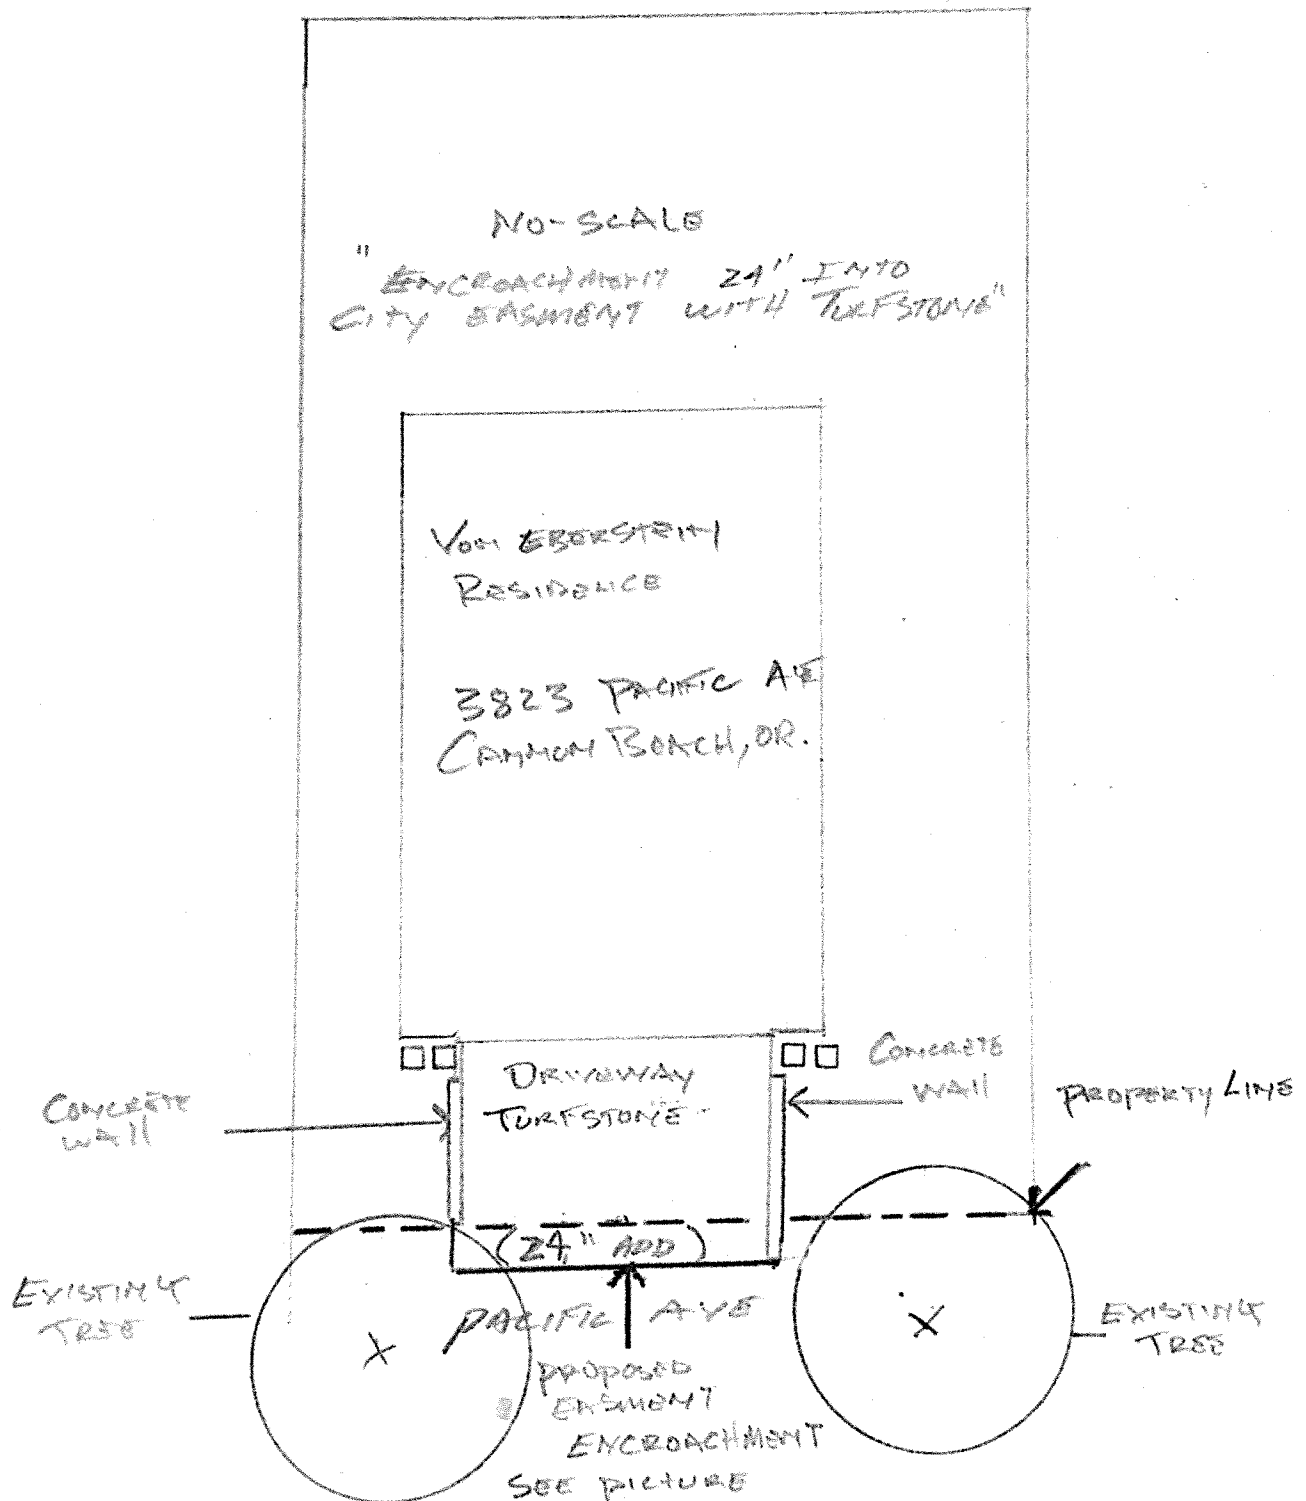 NO-SCALE
"ENCROACHMENT 24" INTO
CITY EASMENT WITH TURFSTONE"
VON EBERSTEIN
RESIDENCE
3823 PACIFIC AVE
CANNON BEACH, OR.
DRIVEWAY
TURFSTONE
CONCRETE
WALL
CONCRETE
WALL
PROPERTY LINE
(24" ADD)
EXISTING
TREE
PACIFIC AVE
EXISTING
TREE
PROPOSED
EASMENT
ENCROACHMENT
SEE PICTURE